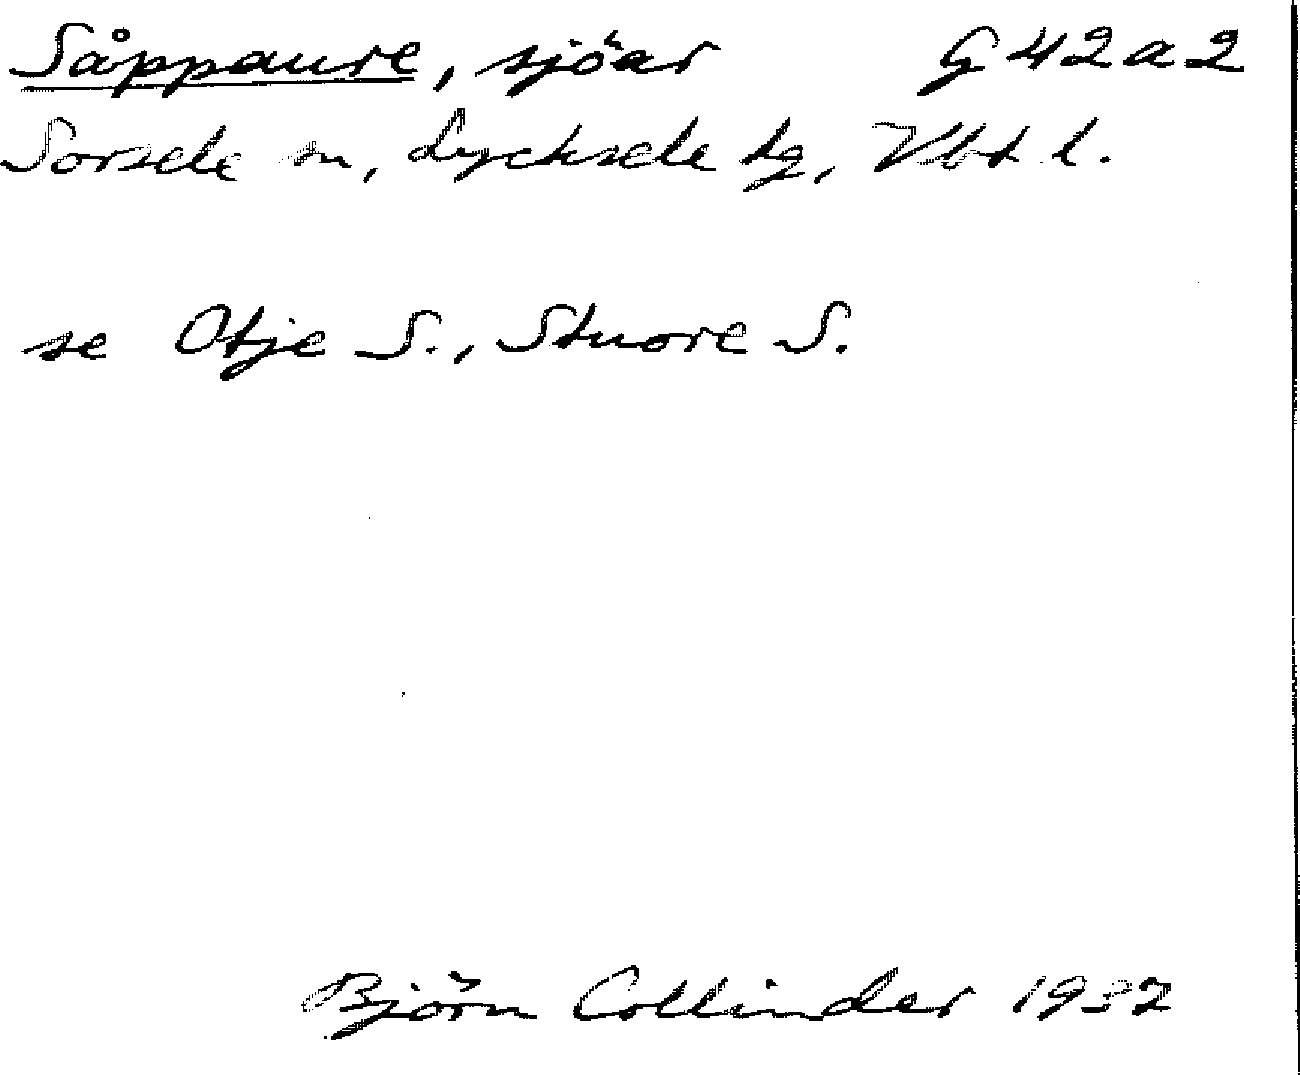 Såppaure, sjöar G 42 a 2
Sorsele sn, Lycksele tg, Vbt l.
se Otje S., Stuore S.
Björn Collinder 1937